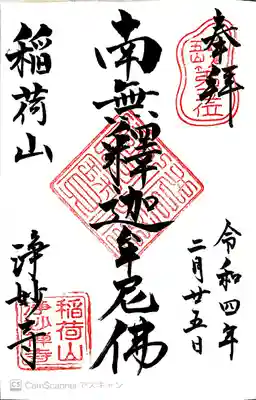 奉拝
令和四年
二月廿五日
南無釋迦牟尼佛
稲荷山
浄妙寺
稲荷山
浄妙寺
CS CamScanner でスキャン